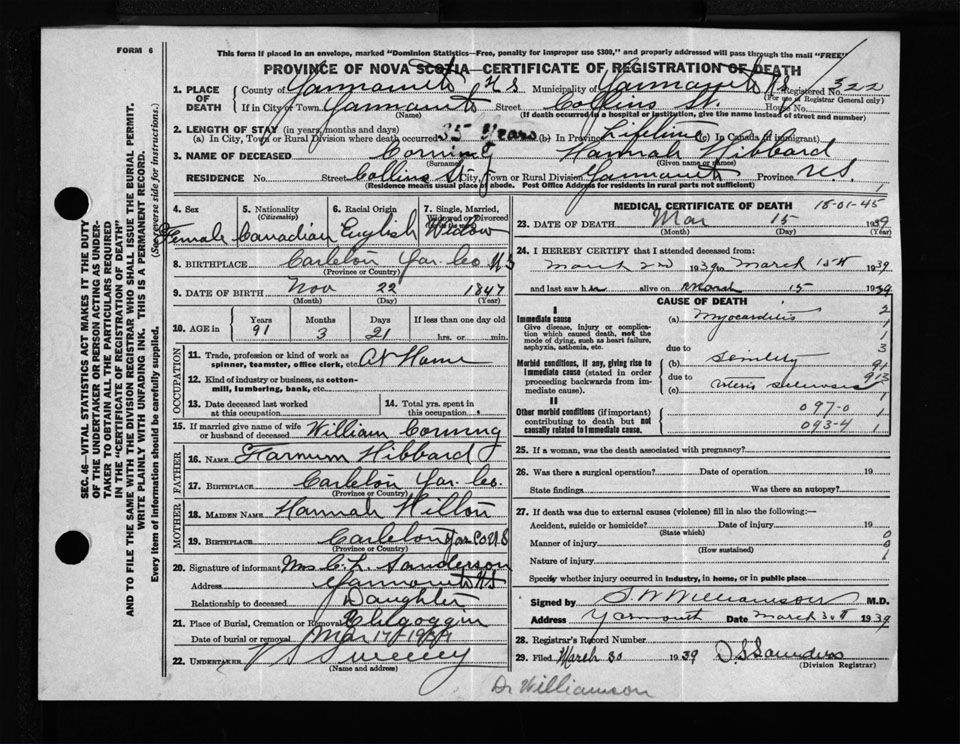 FORM 6
This form if placed in an envelope, marked "Dominion Statistics—Free, penalty for improper use $300," and properly addressed will pass through the mail "FREE"
PROVINCE OF NOVA SCOTIA—CERTIFICATE OF REGISTRATION OF DEATH
1. PLACE OF DEATH
County of Yarmouth N S Municipality of Yarmouth N S Registered No. 322
(For use of Registrar General only)
If in City or Town Yarmouth Street Collins St. House No.
(Name) (If death occurred in a hospital or institution, give the name instead of street and number)
2. LENGTH OF STAY (in years, months and days)
(a) In City, Town or Rural Division where death occurred 35 Years (b) In Province Lifetime (c) In Canada (if immigrant)
3. NAME OF DECEASED Corning Hannah Hibbard
(Surname) (Given name or names)
RESIDENCE No. Street Collins St City, Town or Rural Division Yarmouth Province N.S. 1
(Residence means usual place of abode. Post Office Address for residents in rural parts not sufficient)
4. Sex
Female
5. Nationality (Citizenship)
Canadian
6. Racial Origin
English
7. Single, Married, Widowed or Divorced
Widow
8. BIRTHPLACE Carleton Yar. Co N S
(Province or Country)
9. DATE OF BIRTH Nov 22 1847
(Month) (Day) (Year)
10. AGE in
Years Months Days If less than one day old
91 3 21 hrs. or min.
OCCUPATION
11. Trade, profession or kind of work as spinner, teamster, office clerk, etc. At Home
12. Kind of industry or business, as cotton-mill, lumbering, bank, etc.
13. Date deceased last worked at this occupation
14. Total yrs. spent in this occupation
15. If married give name of wife or husband of deceased William Corning
FATHER
16. NAME Farnum Hibbard
17. BIRTHPLACE Carleton Yar. Co.
(Province or Country)
MOTHER
18. MAIDEN NAME Hannah Hilton
19. BIRTHPLACE Carleton Yar Co N S
(Province or Country)
20. Signature of informant Mrs C. L. Sanderson
Address Yarmouth N S
Relationship to deceased Daughter
21. Place of Burial, Cremation or Removal Chegoggin
Date of burial or removal Mar 17-1939
22. UNDERTAKER V S Sweeney
(Name and address)
MEDICAL CERTIFICATE OF DEATH 18-01-45
23. DATE OF DEATH Mar 15 1939
(Month) (Day) (Year)
24. I HEREBY CERTIFY that I attended deceased from:
March 2nd 1939 to March 15th 1939
and last saw her alive on March 15 1939
CAUSE OF DEATH
I
Immediate cause
Give disease, injury or complication which caused death, not the mode of dying, such as heart failure, asphyxia, asthenia, etc.
(a) Myocarditis 2
1
due to 3
Morbid conditions, if any, giving rise to immediate cause (stated in order proceeding backwards from immediate cause).
(b) Senility 91
due to 913
(c) Arterio sclerosis 1
II
Other morbid conditions (if important) contributing to death but not causally related to immediate cause.
097-0 1
093-4 1
25. If a woman, was the death associated with pregnancy?
26. Was there a surgical operation? Date of operation 19
State findings Was there an autopsy?
27. If death was due to external causes (violence) fill in also the following:—
Accident, suicide or homicide? Date of injury 19
(State which) 0
Manner of injury 0
(How sustained)
Nature of injury 1
Specify whether injury occurred in industry, in home, or in public place
Signed by S W Williamson M.D.
Address Yarmouth Date March 30th 1939
28. Registrar's Record Number
29. Filed March 30 1939 D S Saunders
(Division Registrar)
Dr Williamson
SEC. 46—VITAL STATISTICS ACT MAKES IT THE DUTY
OF THE UNDERTAKER OR PERSON ACTING AS UNDERTAKER
TO OBTAIN ALL THE PARTICULARS REQUIRED
IN THE "CERTIFICATE OF REGISTRATION OF DEATH"
AND TO FILE THE SAME WITH THE DIVISION REGISTRAR WHO SHALL ISSUE THE BURIAL PERMIT.
WRITE PLAINLY WITH UNFADING INK. THIS IS A PERMANENT RECORD.
Every item of information should be carefully supplied. (See reverse side for instructions.)